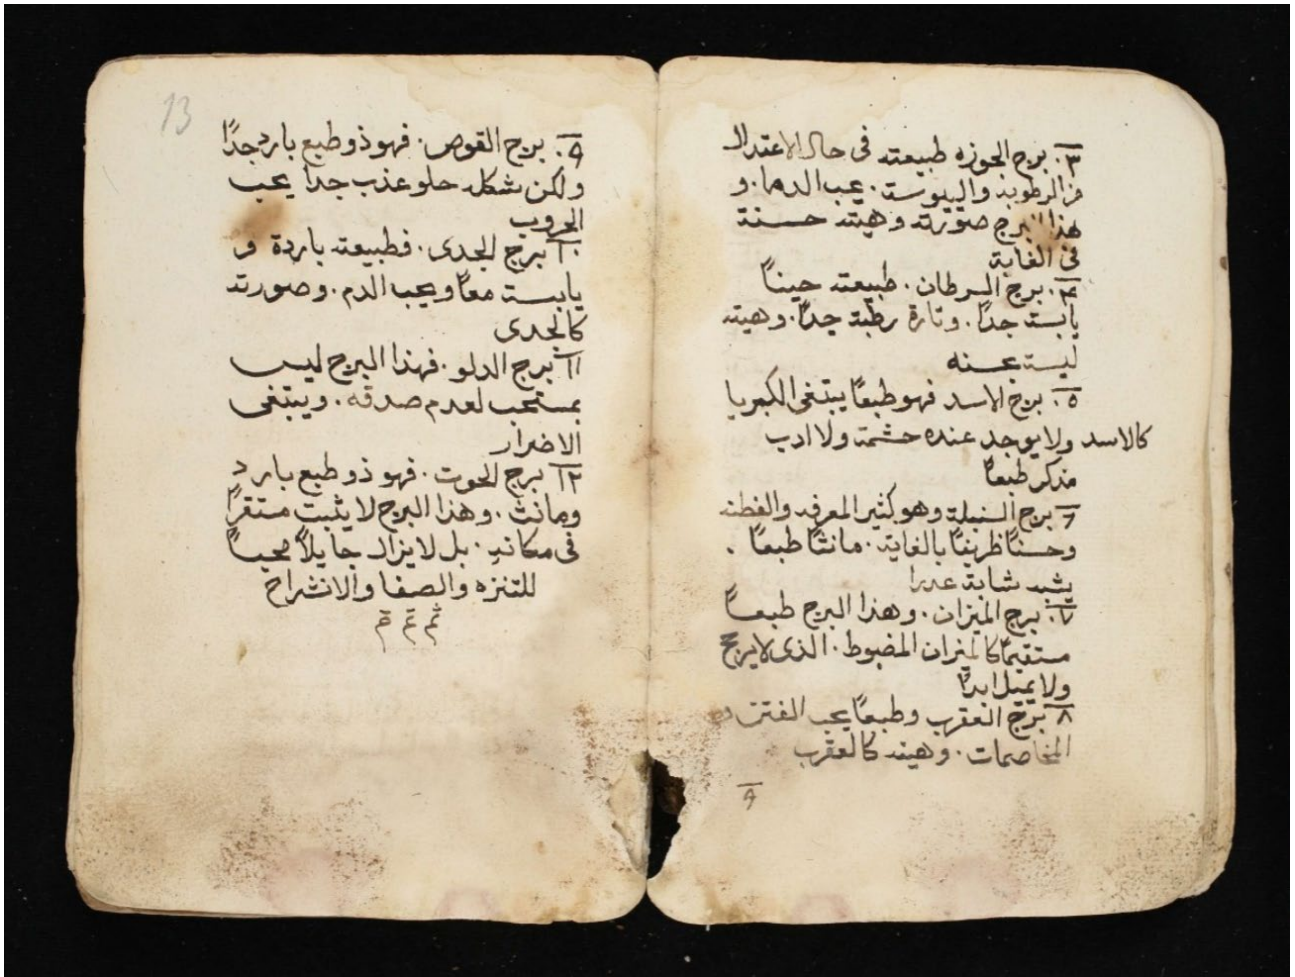 ٣. برج الجوزه طبيعته في حال الاعتدال
من الرطوبة واليبوست. يحب الدما. و
هذا البرج صورته وهيته حسنة
في الغاية
٤. برج السرطان. طبيعته حيناً
يابسته جداً. وتارة رطبة جداً. وهيته
ليست حسنه
٥. برج الاسد فهو طبعاً يبتغي الكبريا
كالاسد ولا يوجد عنده حشمة ولا ادب
مذكر طبعاً
٦ برج السنبلة وهو كثير المعرفه والفطنه
وحسناً ظريفاً بالغاية. مانثاً طبعاً.
يشبه شابة عدرا
٧. برج الميزان. وهذا البرج طبعاً
مستقيماً كالميزان المضبوط. الذي لا يرجح
ولا يميل ابداً
٨ برج العقرب وطبعاً يحب الفتن و
المخاصمات. وهيته كالعقرب
٩
13
٩. برج القوص. فهو ذو طبع بارد جداً
ولكن شكله حلو عذب جدا يحب
الحروب
١٠ برج الجدي. فطبيعته باردة و
يابست معاً ويحب الدم. وصورته
كالجدي
١١ برج الدلو. فهذا البرج ليس
بمستحب لعدم صدقه. ويبتغي
الاضرار
١٢ برج الحوت. فهو ذو طبع بارد
ومانث. وهذا البرج لا يثبت مستقراً
في مكانهِ. بل لا يزال جايلاً محباً
للتنزه والصفا والانشراح
تم تم تم